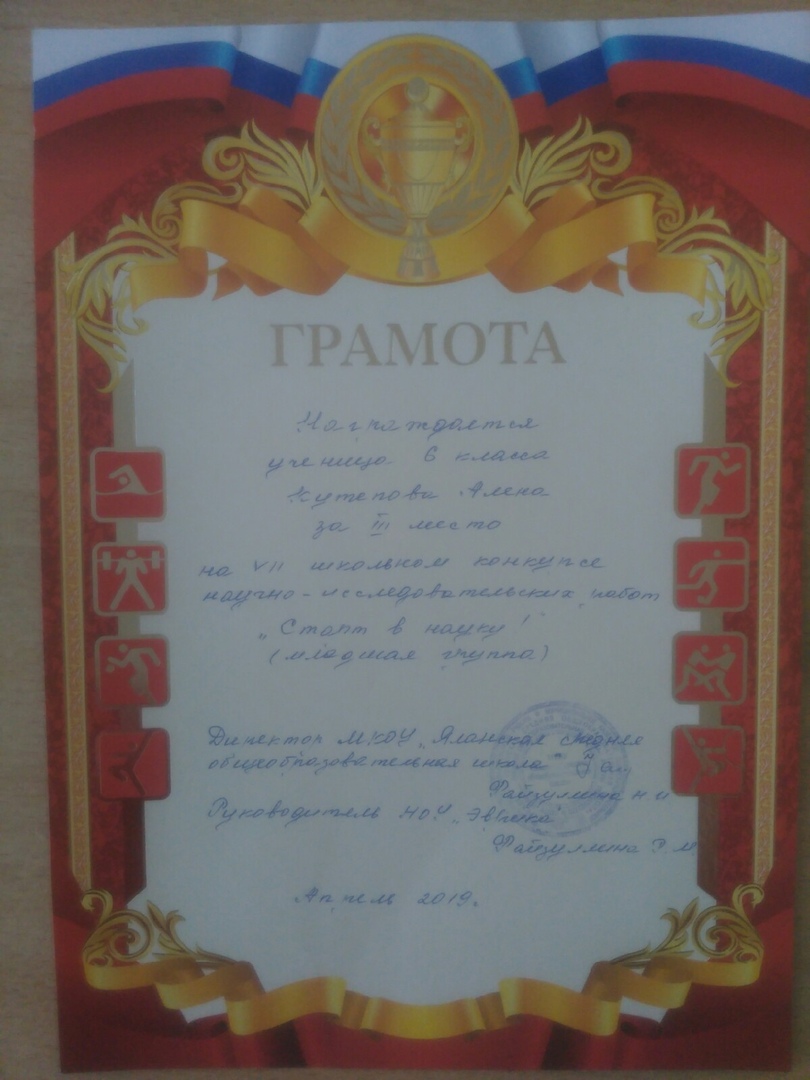 ГРАМОТА
Награждается
ученица 6 класса
Кутепова Алена
за III место
на VII школьном конкурсе
научно-исследовательских работ
„Старт в науку"
(младшая группа)
Директор МКОУ „Яланская средняя
общеобразовательная школа"
Файзуллина Н И
Руководитель НОУ „Эврика"
Файзуллина Р. М.
Апрель 2019.